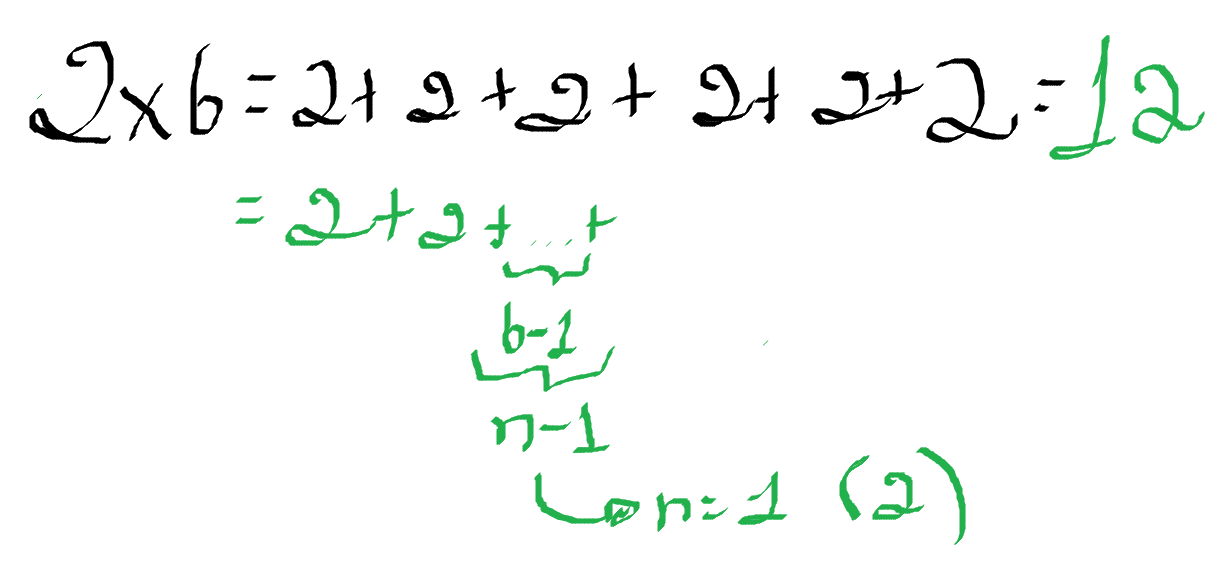 2×6=2+2+2+2+2+2=12
=2+2+...+
6-1
n-1
n=1 (2)